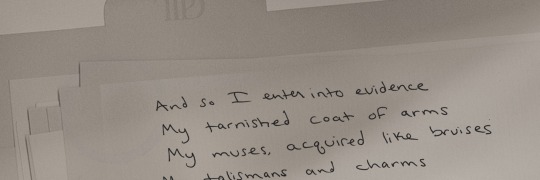 And so I enter into evidence
My tarnished coat of arms
My muses, acquired like bruises
My talismans and charms